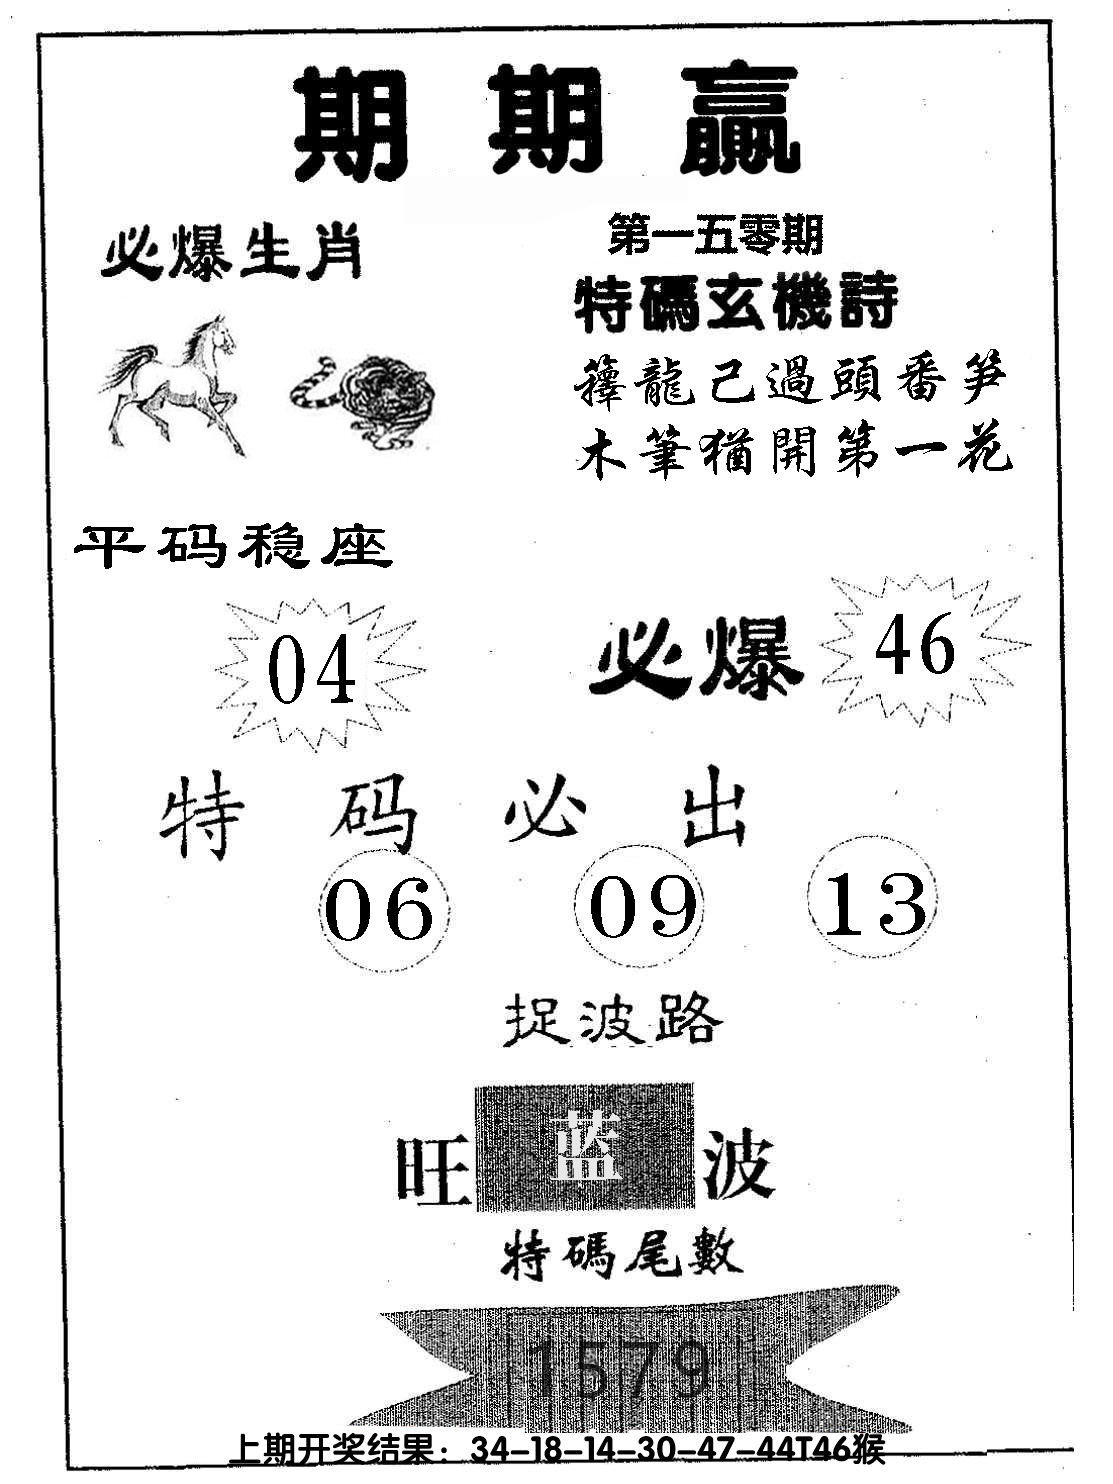 期期贏
必爆生肖
第一五零期
特碼玄機詩
籜龍己過頭番笋
木筆猶開第一花
平码稳座
04
必爆
46
特码必出
06 09 13
捉波路
旺蓝波
特碼尾數
1579
上期开奖结果：34-18-14-30-47-44T46猴